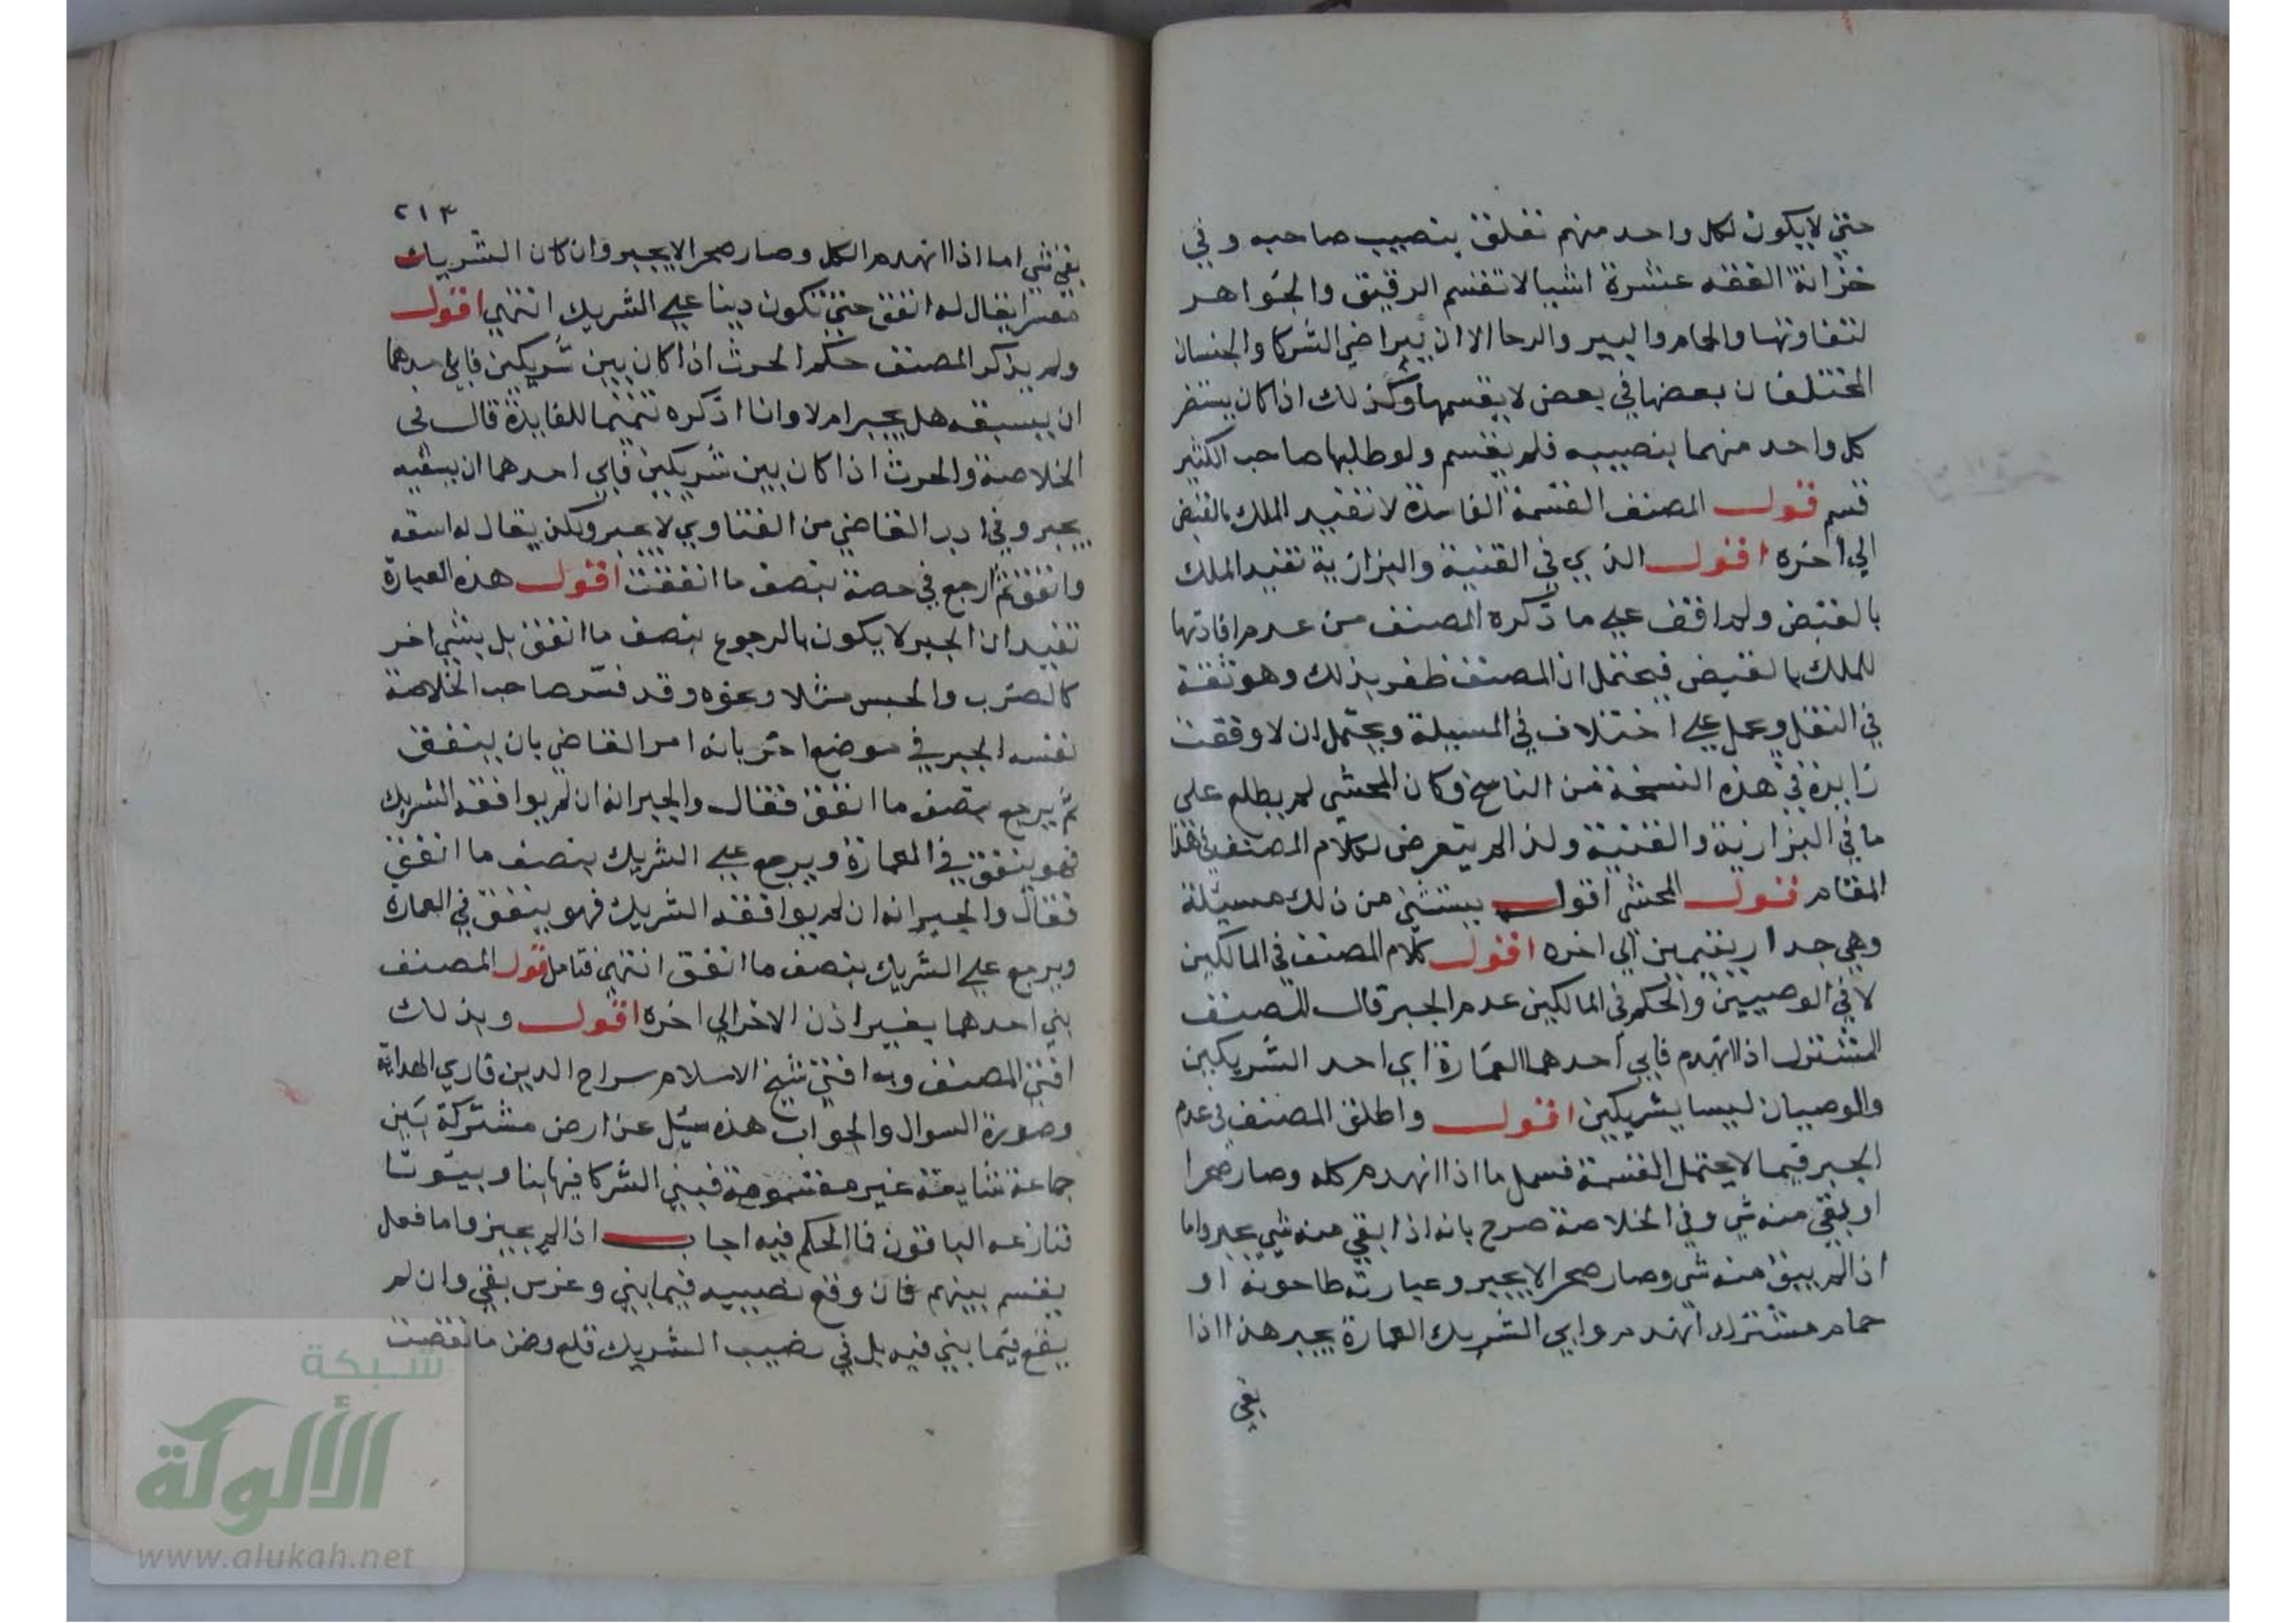 حتي لا يكون لكل واحد منهم تعلق بنصيب صاحبه وفي
خزانة الفقه عشرة اشيا لا تقسم الرقيق والجواهر
لتفاوتها والحمام والبير والرحا الا ان يتراضي الشركا والجنسان
المختلفان بعضها في بعض لا يقسمها وكذلك اذا كان يستضر
كل واحد منهما بنصيبه فلم يقسم ولو طلبها صاحب الكثير
قسم قول المصنف القسمة الفاسدة لا تفيد الملك بالقبض
الي اخره اقول الذي في القنية والبزازية تفيد الملك
بالقبض ولم اقف علي ما ذكره المصنف من عدم افادتها
للملك بالقبض فيحتمل ان المصنف ظفر بذلك وهو ثقة
في النقل ويحمل علي اختلاف في المسيلة ويحتمل ان لا وقعت
زايدة في هذه النسخة من الناسخ وكان المحشي لم يطلع على
ما في البزازية والقنية ولذا لم يتعرض لكلام المصنف في هذا
المقام قول المحشي اقول يستثني من ذلك مسيلة
وهي جدار يتيمين الي اخره اقول كلام المصنف في المالكين
لا في الوصيين والحكم في المالكين عدم الجبر قال المصنف
المشترك اذا انهدم فابي احدهما العمارة اي احد الشريكين
والوصيان ليسا بشريكين اقول واطلق المصنف في عدم
الجبر فيما لا يحتمل القسمة فسمل ما اذا انهدم كله وصار صحرا
او بقي منه شي وفي الخلاصة صرح بانه اذا بقي منه شي يجبر واما
اذا لم يبق منه شي وصار صحرا لا يجبر وعبارته طاحونة او
حمام مشترك انهدم وابي الشريك العمارة يجبر هذا اذا
بقي
٢١٣
بقي شي اما اذا انهدم الكل وصار صحرا لا يجبر وان كان الشريك
معسرا يقال له انفق حتي تكون دينا علي الشريك انتهي اقول
ولم يذكر المصنف حكم الحرث اذا كان بين شريكين فابي احدهما
ان يسقيه هل يجبر ام لا وانا اذكره تتميما للفايدة قال في
الخلاصة والحرث اذا كان بين شريكين فابي احدهما ان يسقيه
يجبر وفي ادب القاضي من الفتاوي لا يجبر ولكن يقال له اسقه
وانفق ثم ارجع في حصة بنصف ما انفقت اقول هذه العبارة
تفيد ان الجبر لا يكون بالرجوع بنصف ما انفق بل بشي اخر
كالضرب والحبس مثلا ونحوه وقد فسر صاحب الخلاصة
نفسه الجبر في موضع اخر بانه امر القاضي بان ينفق
ثم يرجع بنصف ما انفق فقال والجبر انه ان لم يوافقه الشريك
فهو ينفق في العمارة ويرجع علي الشريك بنصف ما انفق
فقال والجبر انه ان لم يوافقه الشريك فهو ينفق في العمارة
ويرجع علي الشريك بنصف ما انفق انتهي فتامل قول المصنف
بني احدهما بغير اذن الاخر الي اخره اقول وبذلك
افتي المصنف وبه افتي شيخ الاسلام سراج الدين قاري الهداية
وصورة السوال والجواب هذه سيل عن ارض مشتركة بين
جماعة شايعة غير مقسومة فبني الشركا فيها بنا وبيوتا
فنازعه الباقون فما الحكم فيه اجاب اذا لم يجيزوا ما فعل
يقسم بينهم فان وقع نصيبه فيما بني وغرس بقي وان لم
يقع فيما بني فيه بل في نصيب الشريك قلع وضمن ما نقصت
شبكة
الألوكة
www.alukah.net